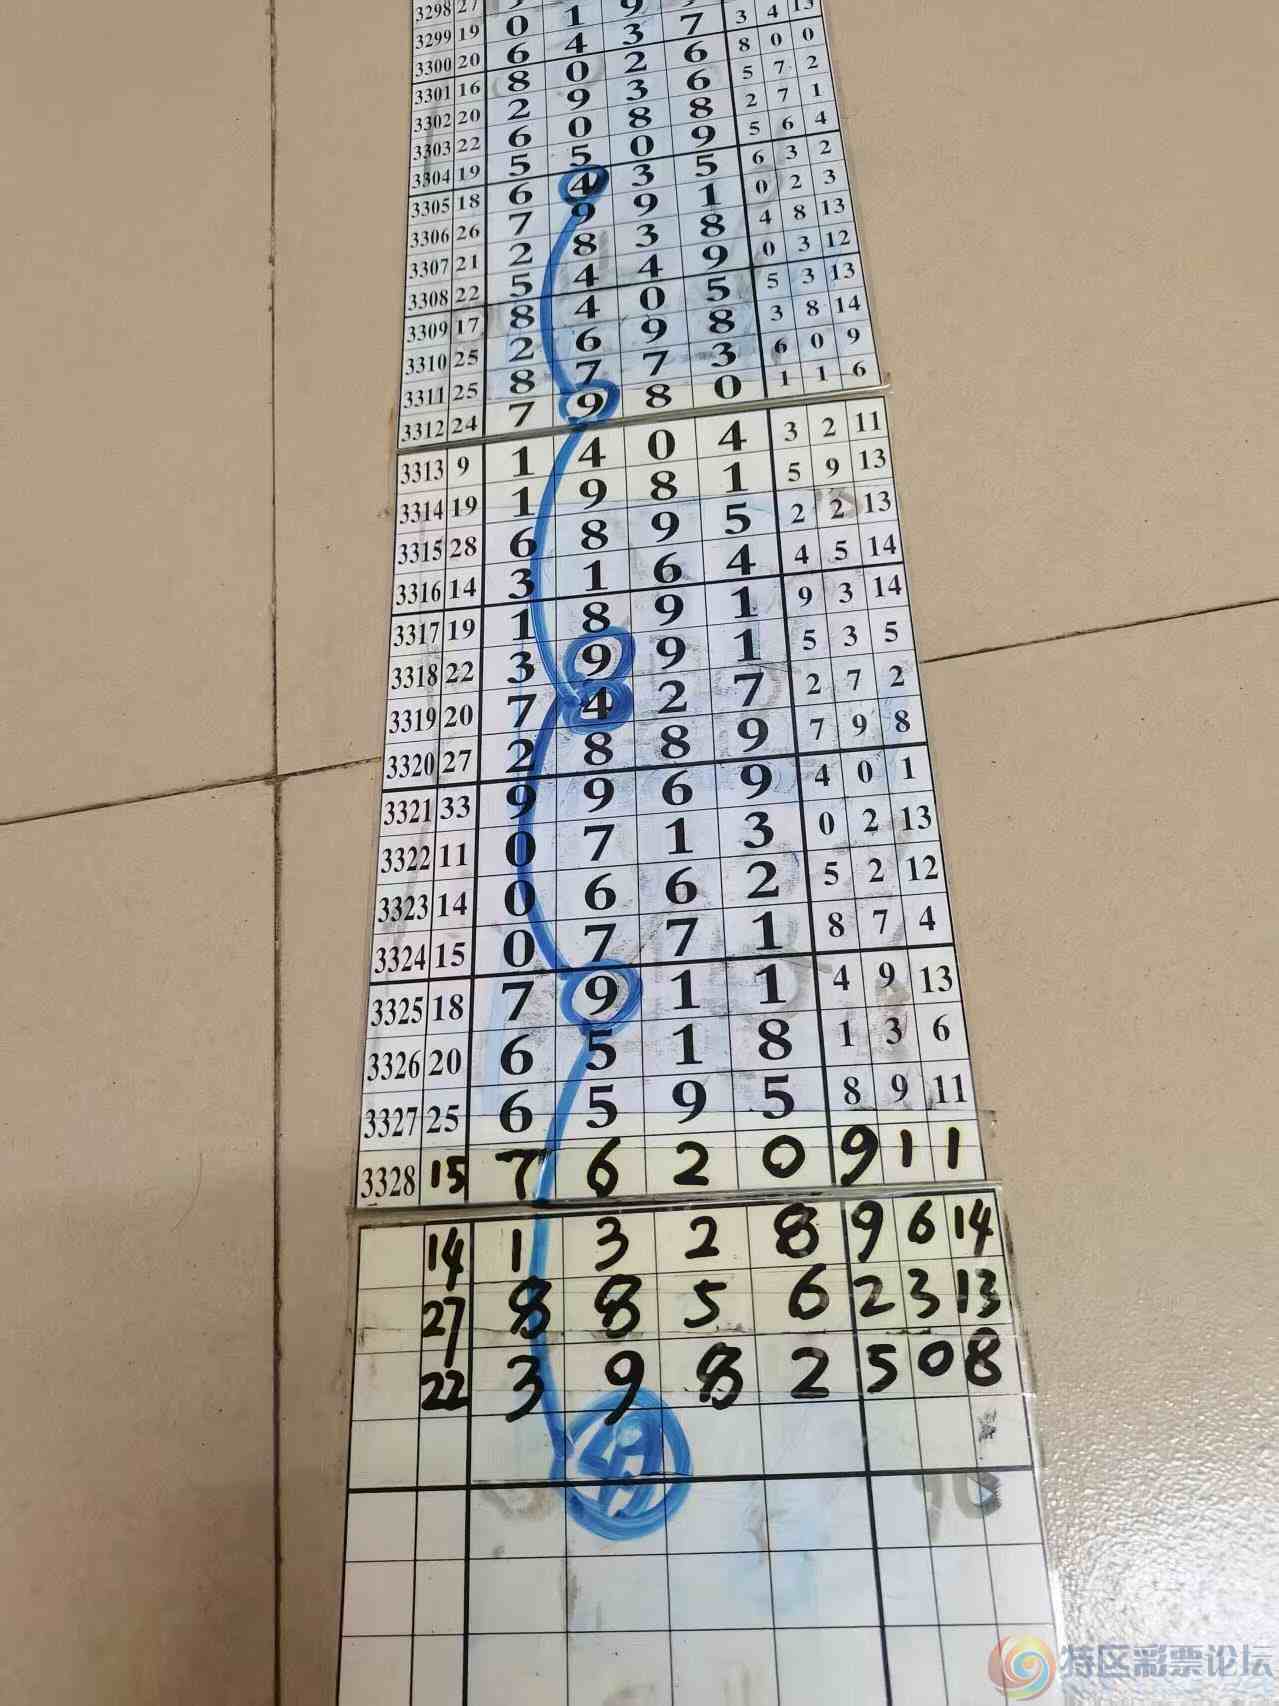 3298 27
3299 19 0 1 9
3300 20 6 4 3 7 3 4 13
3301 16 8 0 2 6 8 0 0
3302 20 2 9 3 6 5 7 2
3303 22 6 0 8 8 2 7 1
3304 19 5 5 0 9 5 6 4
3305 18 6 4 3 5 6 3 2
3306 26 7 9 9 1 0 2 3
3307 21 2 8 3 8 4 8 13
3308 22 5 4 4 9 0 3 12
3309 17 8 4 0 5 5 3 13
3310 25 2 6 9 8 3 8 14
3311 25 8 7 7 3 6 0 9
3312 24 7 9 8 0 1 1 6
3313 9 1 4 0 4 3 2 11
3314 19 1 9 8 1 5 9 13
3315 28 6 8 9 5 2 2 13
3316 14 3 1 6 4 4 5 14
3317 19 1 8 9 1 9 3 14
3318 22 3 9 9 1 5 3 5
3319 20 7 4 2 7 2 7 2
3320 27 2 8 8 9 7 9 8
3321 33 9 9 6 9 4 0 1
3322 11 0 7 1 3 0 2 13
3323 14 0 6 6 2 5 2 12
3324 15 0 7 7 1 8 7 4
3325 18 7 9 1 1 4 9 13
3326 20 6 5 1 8 1 3 6
3327 25 6 5 9 5 8 9 11
3328 15 7 6 2 0 9 1 1
14 1 3 2 8 9 6 14
27 8 8 5 6 2 3 13
22 3 9 8 2 5 0 8
49
特区彩票论坛